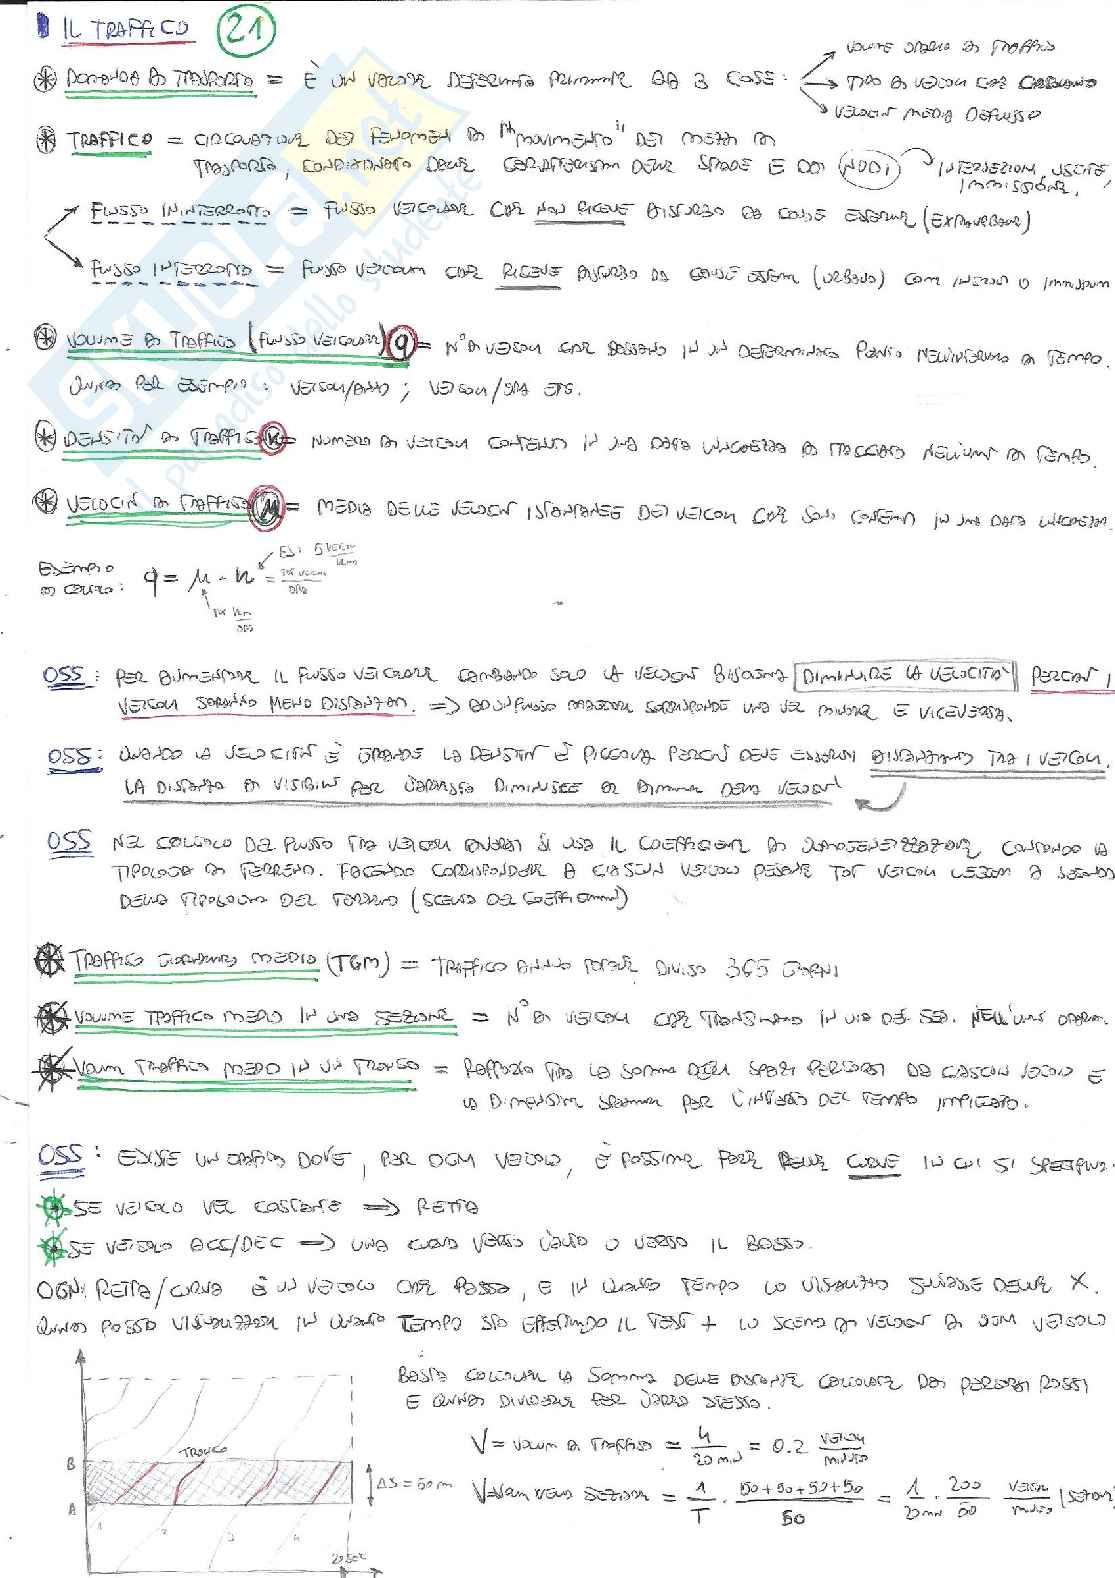 IL TRAFFICO 21
VOLUME ORARIO DI TRAFFICO
DOMANDA DI TRASPORTO = È UN VALORE DETERMINATO DA 3 COSE:
TIPO DI VEICOLI CHE
VELOCITÀ MEDIA DEFLUSSO
TRAFFICO = CIRCOLAZIONE DEI FENOMENI DI "MOVIMENTO" DEI MEZZI DI
TRASPORTO, CONDIZIONATO DALLE CARATTERISTICHE DELLE STRADE E DAI NODI
INTERSEZIONI, USCITE, IMMISSIONI,
FLUSSO ININTERROTTO = FLUSSO VEICOLARE CHE NON RICEVE DISTURBO DA CAUSE ESTERNE (EXTRAURBANE)
FLUSSO INTERROTTO = FLUSSO VEICOLI CHE RICEVE DISTURBO DA CAUSE ESTERNE (URBANO)
VOLUME DI TRAFFICO (FLUSSO VEICOLARE) q = N° DI VEICOLI CHE PASSANO IN UN DETERMINATO PUNTO NELL'INTERVALLO DI TEMPO.
QUINDI PER ESEMPIO: VEICOLI/ANNO; VEICOLI/ORA ETC.
DENSITÀ DI TRAFFICO K = NUMERO DI VEICOLI CONTENUTI IN UNA DATA LUNGHEZZA DI TRACCIATO NELL'UNITÀ DI TEMPO.
VELOCITÀ DI TRAFFICO μ = MEDIA DELLE VELOCITÀ ISTANTANEE DEI VEICOLI CHE SONO CONTENUTI IN UNA DATA LUNGHEZZA.
ESEMPIO DI CALCOLO: q = μ · K =
ES: 5 VEICOLI/KM
TOT VEICOLI/ORA
TOT KM/ORA
OSS: PER AUMENTARE IL FLUSSO VEICOLARE CAMBIANDO SOLO LA VELOCITÀ BISOGNA DIMINUIRE LA VELOCITÀ PERCHÈ I
VEICOLI SARANNO MENO DISTANZIATI. => AD UN FLUSSO MAGGIORE CORRISPONDE UNA VEL MINORE E VICEVERSA.
OSS: QUANDO LA VELOCITÀ È GRANDE LA DENSITÀ È PICCOLA PERCHÈ DEVE ESSERCI DISTANZIAMENTO TRA I VEICOLI.
LA DISTANZA DI VISIBILITÀ PER L'ARRESTO DIMINUISCE AL DIMINUIRE DELLA VELOCITÀ
OSS NEL CALCOLO DEL FLUSSO TRA VEICOLI DIVERSI SI USA IL COEFFICIENTE DI OMOGENEIZZAZIONE, CONTANDO LA
TIPOLOGIA DI TERRENO. FACENDO CORRISPONDERE A CIASCUN VEICOLO PESANTE TOT VEICOLI LEGGERI A SECONDA
DELLA TIPOLOGIA DEL TERRENO (SCELTA DEL COEFFICIENTE)
TRAFFICO GIORNALIERO MEDIO (TGM) = TRAFFICO ANNUO TOTALE DIVISO 365 GIORNI
VOLUME TRAFFICO MEDIO IN UNA SEZIONE = N° DI VEICOLI CHE TRANSITANO IN UNA DET. SEZ. NELL'UNITÀ ORARIA.
VOLUM TRAFFICO MEDIO IN UN TRONCO = RAPPORTO TRA LA SOMMA DEGLI SPAZI PERCORSI DA CIASCUN VEICOLO E
LA DIMENSIONE SPAZIALE PER L'INTERVALLO DEL TEMPO IMPIEGATO.
OSS: ESISTE UN GRAFICO DOVE, PER OGNI VEICOLO, È POSSIBILE FARE DELLE CURVE IN CUI SI
SE VEICOLO VEL COSTANTE => RETTA
SE VEICOLO ACC/DEC => UNA CURVA VERSO L'ALTO O VERSO IL BASSO.
OGNI RETTA/CURVA È UN VEICOLO CHE PASSA, E IN QUANTO TEMPO LO VISUALIZZO SULL'ASSE DELLE X.
QUINDI POSSO VISUALIZZARE IN QUANTO TEMPO STO EFFETTUANDO IL TEST + LO SCHEMA DI VELOCITÀ DI OGNI VEICOLO
BASTA CALCOLARE LA SOMMA DELLE DISTANZE CALCOLATE DAI PERCORSI ROSSI
E QUINDI DIVIDERE PER L'AREA STESSA.
TRONCO
B
A
ΔS = 50 m
1 2 3 4
V = VOLUM DI TRAFFICO = 4/20 MIN = 0.2 VEICOLI/MINUTO
SEZIONE = 1/T · (50+50+50+50)/50 = 1/20MIN · 200/50 VEICOLI/MINUTO